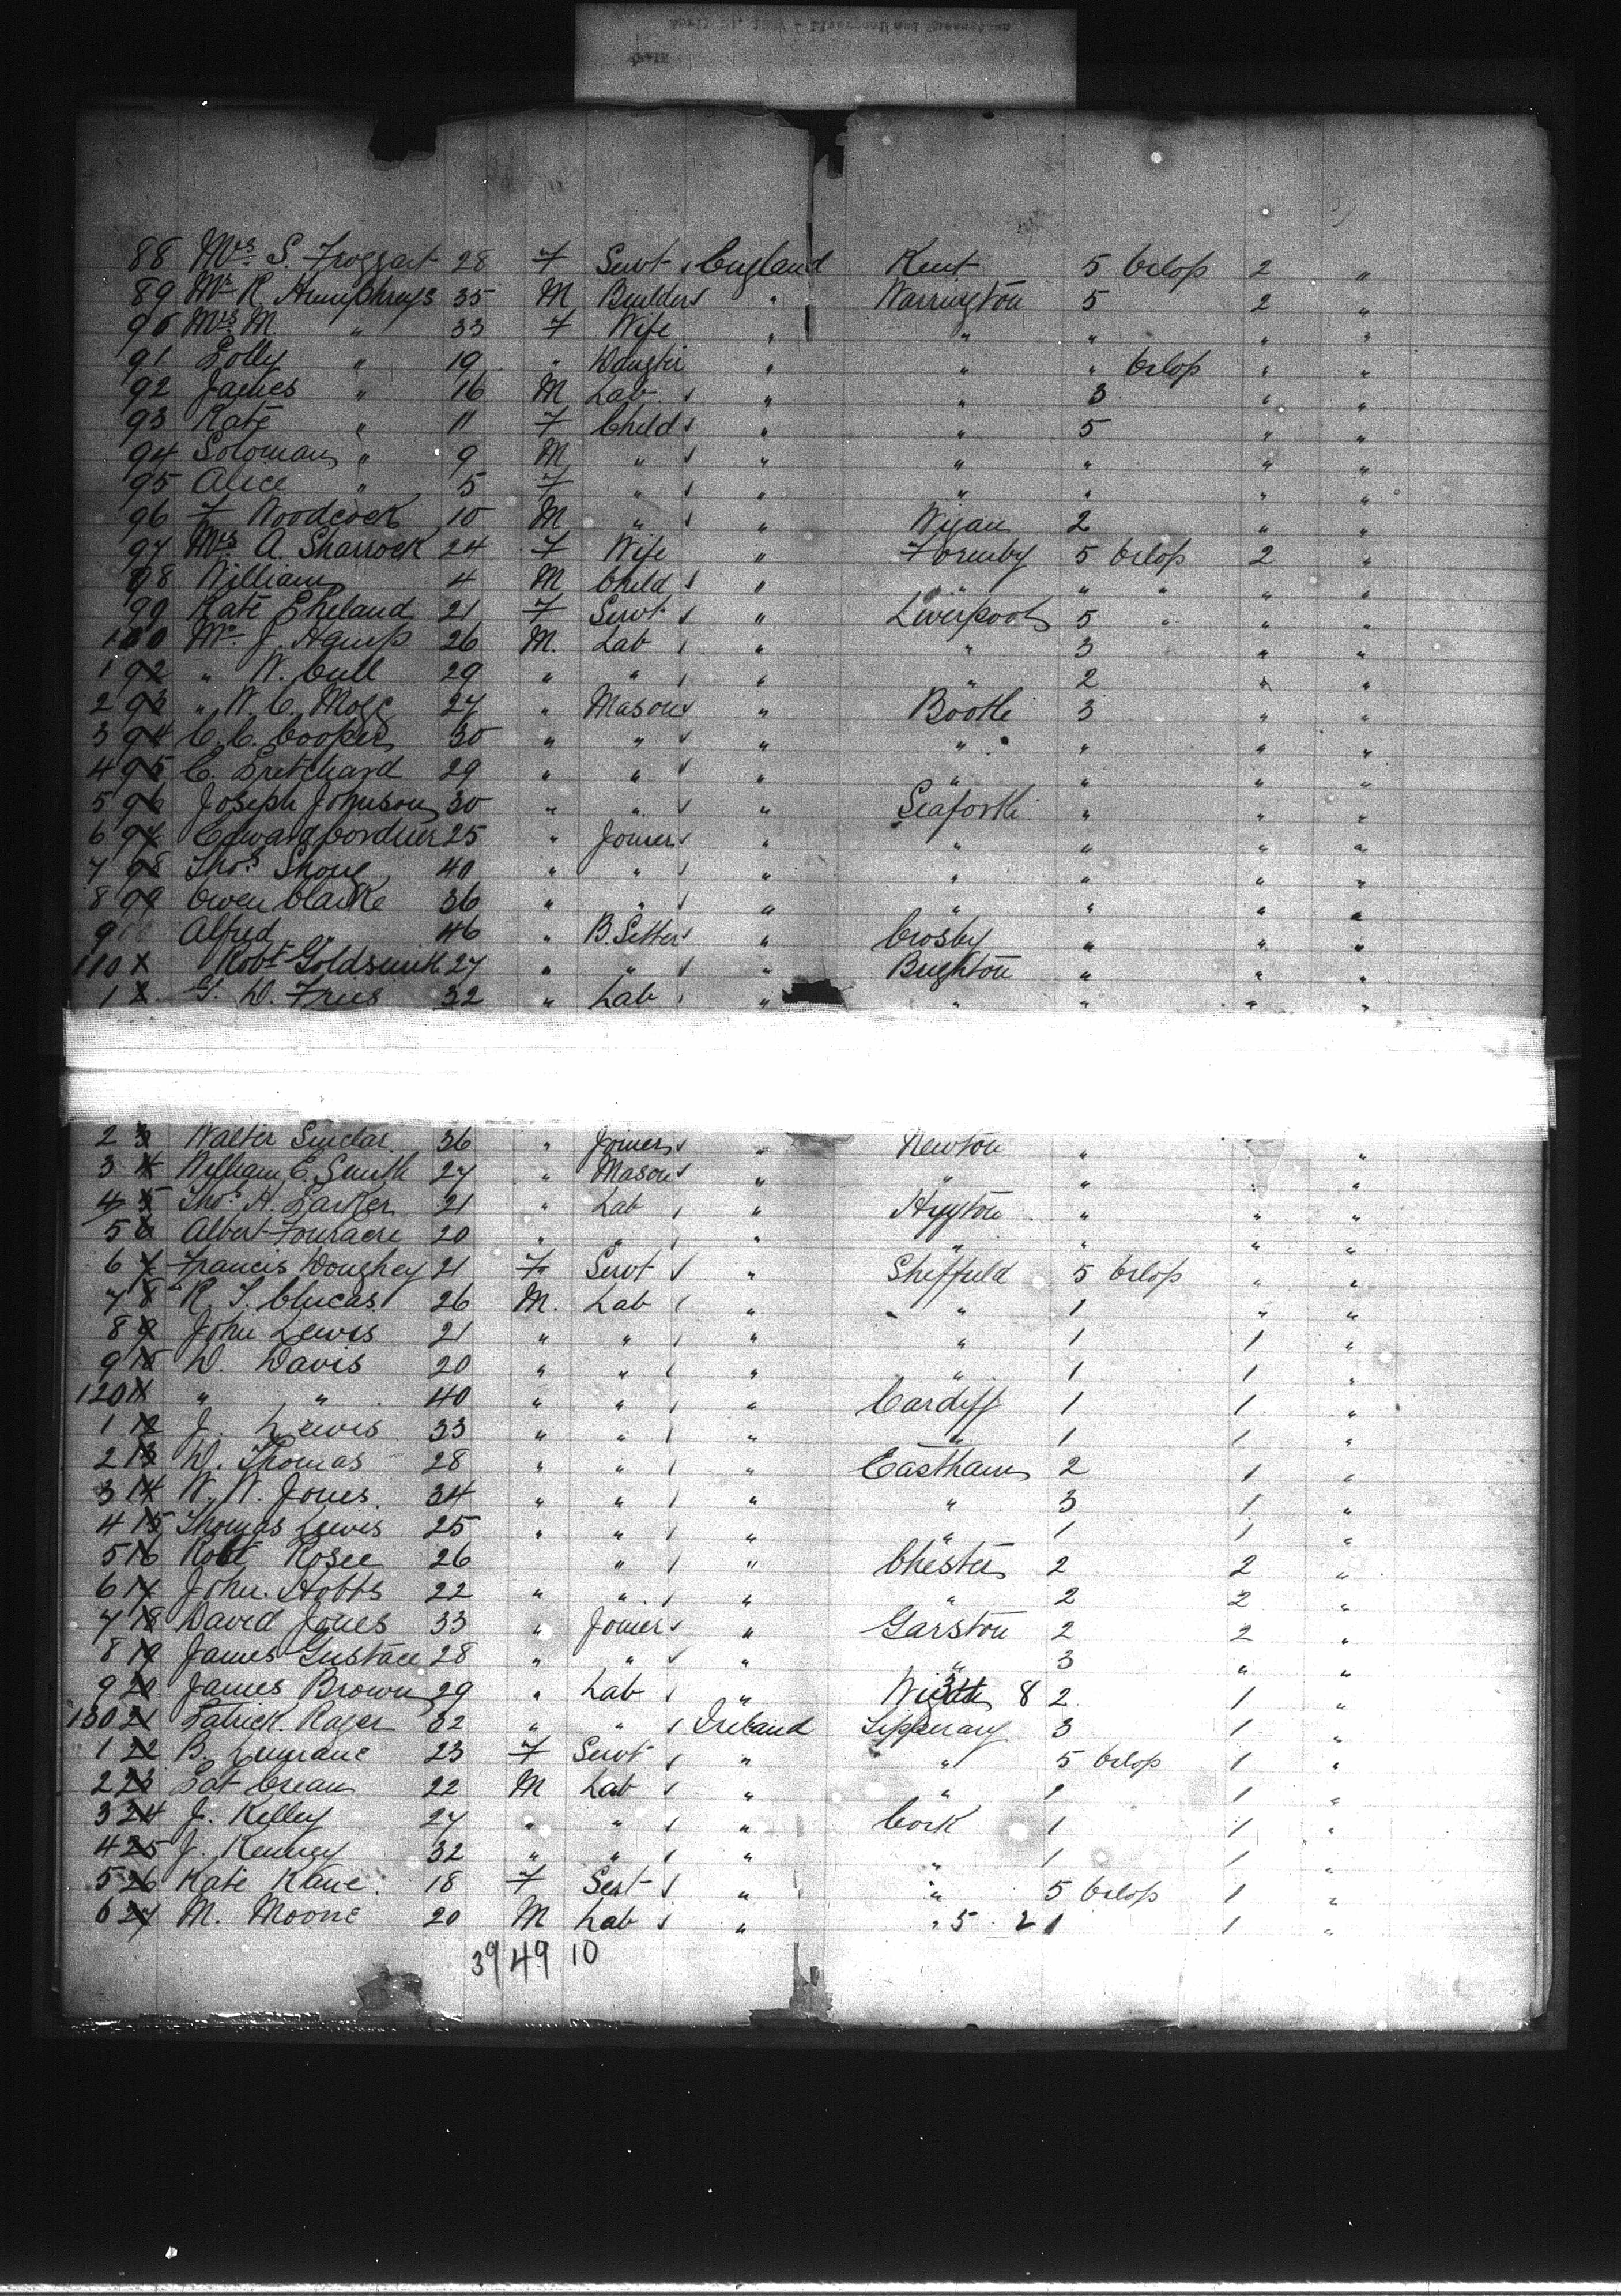 88 Mrs. S. Froggart 28 F Servt England Kent 5 Orlop 2 "
89 Mr. R Humphreys 35 M Builder " Warrington 5 2 "
90 Mrs. M " 33 F Wife " " " " "
91 Polly " 19 " Daughtr " " " Orlop " "
92 James " 16 M Lab " " 3 " "
93 Kate " 11 F Child " " 5 " "
94 Soloman " 9 M " " " " " "
95 Alice " 5 F " " " " " "
96 F Woodcock 10 M " " Wigan 2 " "
97 Mrs A. Sharrock 24 F Wife " Formby 5 Orlop 2 "
98 William 4 M Child " " " " " "
99 Kate 21 F Servt " Liverpool 5 " " "
100 Mr. J. 26 M. Lab " " 3 " "
1 92 " W. Cull 29 " " " " 2 " "
2 93 " W. C. Mogg 27 " Mason " Bootle 3 " "
3 94 C. C. Cooper 30 " " " " " " "
4 95 C. Pritchard 29 " " " " " " "
5 96 Joseph Johnson 30 " " " Seaforth " " "
6 97 Edward Cordner 25 " Joiner " " " " "
7 98 Thos. Shone 40 " " " " " " "
8 99 Owen Clarke 36 " " " " " " "
9 Alfred " 46 " B. Setter " Crosby " " "
110 Robt Goldsmith 27 " " " Brighton " " "
1 2 G. W. Frees 32 " Lab " " " " "
2 3 Walter Sinclar 36 " Joiner " Newton " " "
3 4 William E. Smith 27 " Mason " " " " "
4 5 Thos. H. Parker 21 " Lab " Huyton " " "
5 6 Albert Fouracre 20 " " " " " " "
6 7 Francis Doughey 21 F Servt " Sheffield 5 Orlop " "
7 8 R. T. Clucas 26 M. Lab " " 1 " "
8 9 John Lewis 21 " " " " 1 1 "
9 10 W. Davis 20 " " " " 1 1 "
120 11 " " 40 " " " Cardiff 1 1 "
1 12 J. Lewis 33 " " " " 1 1 "
2 13 W. Thomas 28 " " " Eastham 2 1 "
3 14 W. W. Jones 34 " " " " 3 1 "
4 15 Thomas Lewis 25 " " " " 1 1 "
5 16 Robt Rosee 26 " " Chester 2 2 "
6 17 John. Hobbs 22 " " " " 2 2 "
7 18 David Jones 33 " Joiner " Garston 2 2 "
8 19 James Gustace 28 " " " " 3 " "
9 20 James Brown 29 " Lab " 8 2 1 "
130 21 Patrick Rager 32 " " Ireland Tipperary 3 1 "
1 22 B. 23 F Servt " " 5 Orlop 1 "
2 23 Pat Crean 22 M Lab " " 1 1 "
3 24 J. Kelley 27 " " " Cork 1 1 "
4 25 J. Kenney 32 " " " " 1 1 "
5 26 Kate Kane. 18 F Sert " " 5 Orlop 1 "
6 27 M. Moone 20 M Lab " " 5 2 1 1 "
39 49 10